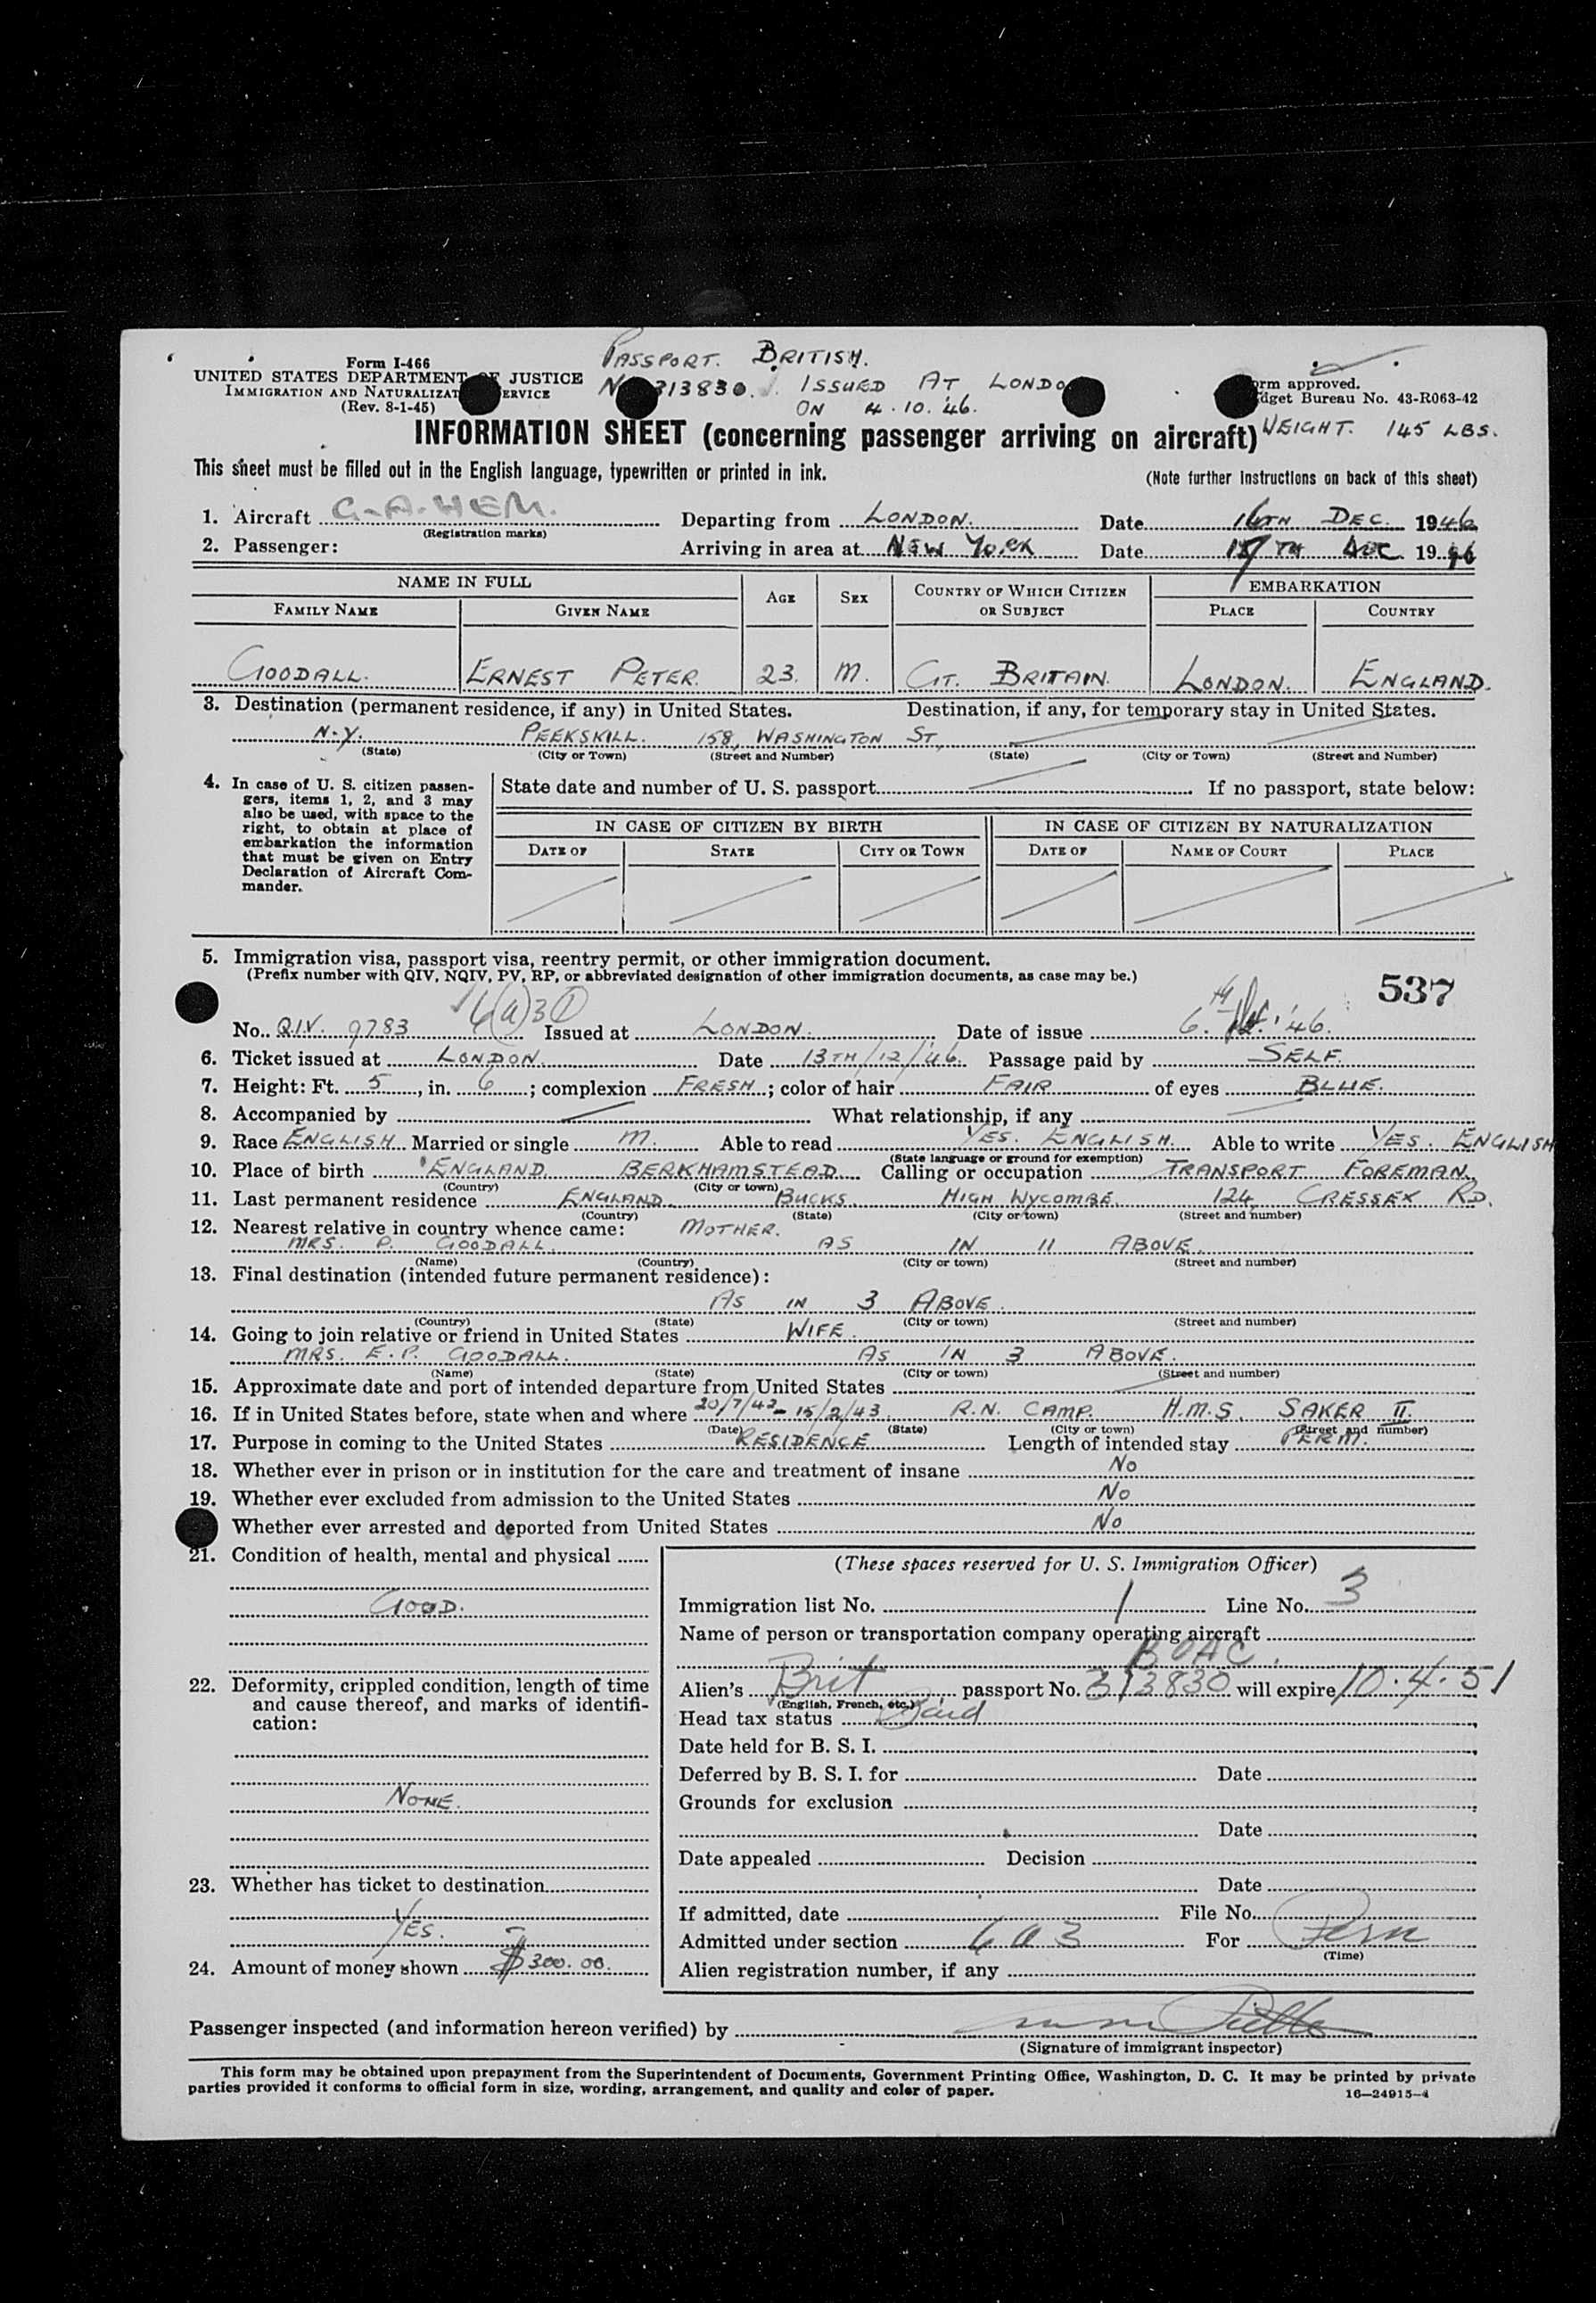 Form I-466
UNITED STATES DEPARTMENT OF JUSTICE
IMMIGRATION AND NATURALIZATION SERVICE
(Rev. 8-1-45)
PASSPORT. BRITISH.
313830. ISSUED AT LONDON
ON 4.10.'46.
Form approved.
Budget Bureau No. 43-R063-42
INFORMATION SHEET (concerning passenger arriving on aircraft) WEIGHT. 145 LBS.
This sheet must be filled out in the English language, typewritten or printed in ink. (Note further instructions on back of this sheet)
1. Aircraft G-AHEM. Departing from LONDON. Date 16TH DEC. 1946
(Registration marks)
2. Passenger: Arriving in area at NEW YORK Date 17TH DEC 1946
NAME IN FULL AGE SEX COUNTRY OF WHICH CITIZEN OR SUBJECT EMBARKATION
FAMILY NAME GIVEN NAME PLACE COUNTRY
GOODALL. ERNEST PETER. 23. M. GT. BRITAIN. LONDON. ENGLAND.
3. Destination (permanent residence, if any) in United States. Destination, if any, for temporary stay in United States.
N.Y. PEEKSKILL. 158, WASHINGTON ST.,
(State) (City or Town) (Street and Number) (State) (City or Town) (Street and Number)
4. In case of U. S. citizen passengers, items 1, 2, and 3 may also be used, with space to the right, to obtain at place of embarkation the information that must be given on Entry Declaration of Aircraft Commander.
State date and number of U. S. passport If no passport, state below:
IN CASE OF CITIZEN BY BIRTH IN CASE OF CITIZEN BY NATURALIZATION
DATE OF STATE CITY OR TOWN DATE OF NAME OF COURT PLACE
5. Immigration visa, passport visa, reentry permit, or other immigration document.
(Prefix number with QIV, NQIV, PV, RP, or abbreviated designation of other immigration documents, as case may be.)
537
6(a)3
No. QIV. 9783 Issued at LONDON. Date of issue 6. '46.
6. Ticket issued at LONDON. Date 13TH/12/'46. Passage paid by SELF.
7. Height: Ft. 5, in. 6; complexion FRESH; color of hair FAIR of eyes BLUE.
8. Accompanied by What relationship, if any
9. Race ENGLISH Married or single M. Able to read YES. ENGLISH. Able to write YES. ENGLISH
(State language or ground for exemption)
10. Place of birth ENGLAND BERKHAMSTEAD Calling or occupation TRANSPORT FOREMAN.
(Country) (City or town)
11. Last permanent residence ENGLAND BUCKS HIGH WYCOMBE. 124, CRESSEX RD.
(Country) (State) (City or town) (Street and number)
12. Nearest relative in country whence came: MOTHER.
MRS. P. GOODALL. AS IN 11 ABOVE.
(Name) (Country) (City or town) (Street and number)
13. Final destination (intended future permanent residence):
AS IN 3 ABOVE.
(Country) (State) (City or town) (Street and number)
14. Going to join relative or friend in United States WIFE.
MRS. E.P. GOODALL. AS IN 3 ABOVE.
(Name) (State) (City or town) (Street and number)
15. Approximate date and port of intended departure from United States
16. If in United States before, state when and where 20/7/42 - 15/2/43. R.N. CAMP. H.M.S. SAKER II.
(Date) (State) (City or town) (Street and number)
17. Purpose in coming to the United States RESIDENCE Length of intended stay PERM.
18. Whether ever in prison or in institution for the care and treatment of insane NO
19. Whether ever excluded from admission to the United States NO
Whether ever arrested and deported from United States NO
21. Condition of health, mental and physical
GOOD.
22. Deformity, crippled condition, length of time and cause thereof, and marks of identification:
NONE.
23. Whether has ticket to destination
YES.
24. Amount of money shown $300.00.
(These spaces reserved for U. S. Immigration Officer)
Immigration list No. 1 Line No. 3
Name of person or transportation company operating aircraft
BOAC.
Alien's Brit passport No. 313830 will expire 10.4.51
(English, French, etc.)
Head tax status Paid
Date held for B. S. I.
Deferred by B. S. I. for Date
Grounds for exclusion
Date
Date appealed Decision
Date
If admitted, date File No.
Admitted under section 6 a 3 For Perm
(Time)
Alien registration number, if any
Passenger inspected (and information hereon verified) by
(Signature of immigrant inspector)
This form may be obtained upon prepayment from the Superintendent of Documents, Government Printing Office, Washington, D. C. It may be printed by private
parties provided it conforms to official form in size, wording, arrangement, and quality and color of paper. 16—24915-4